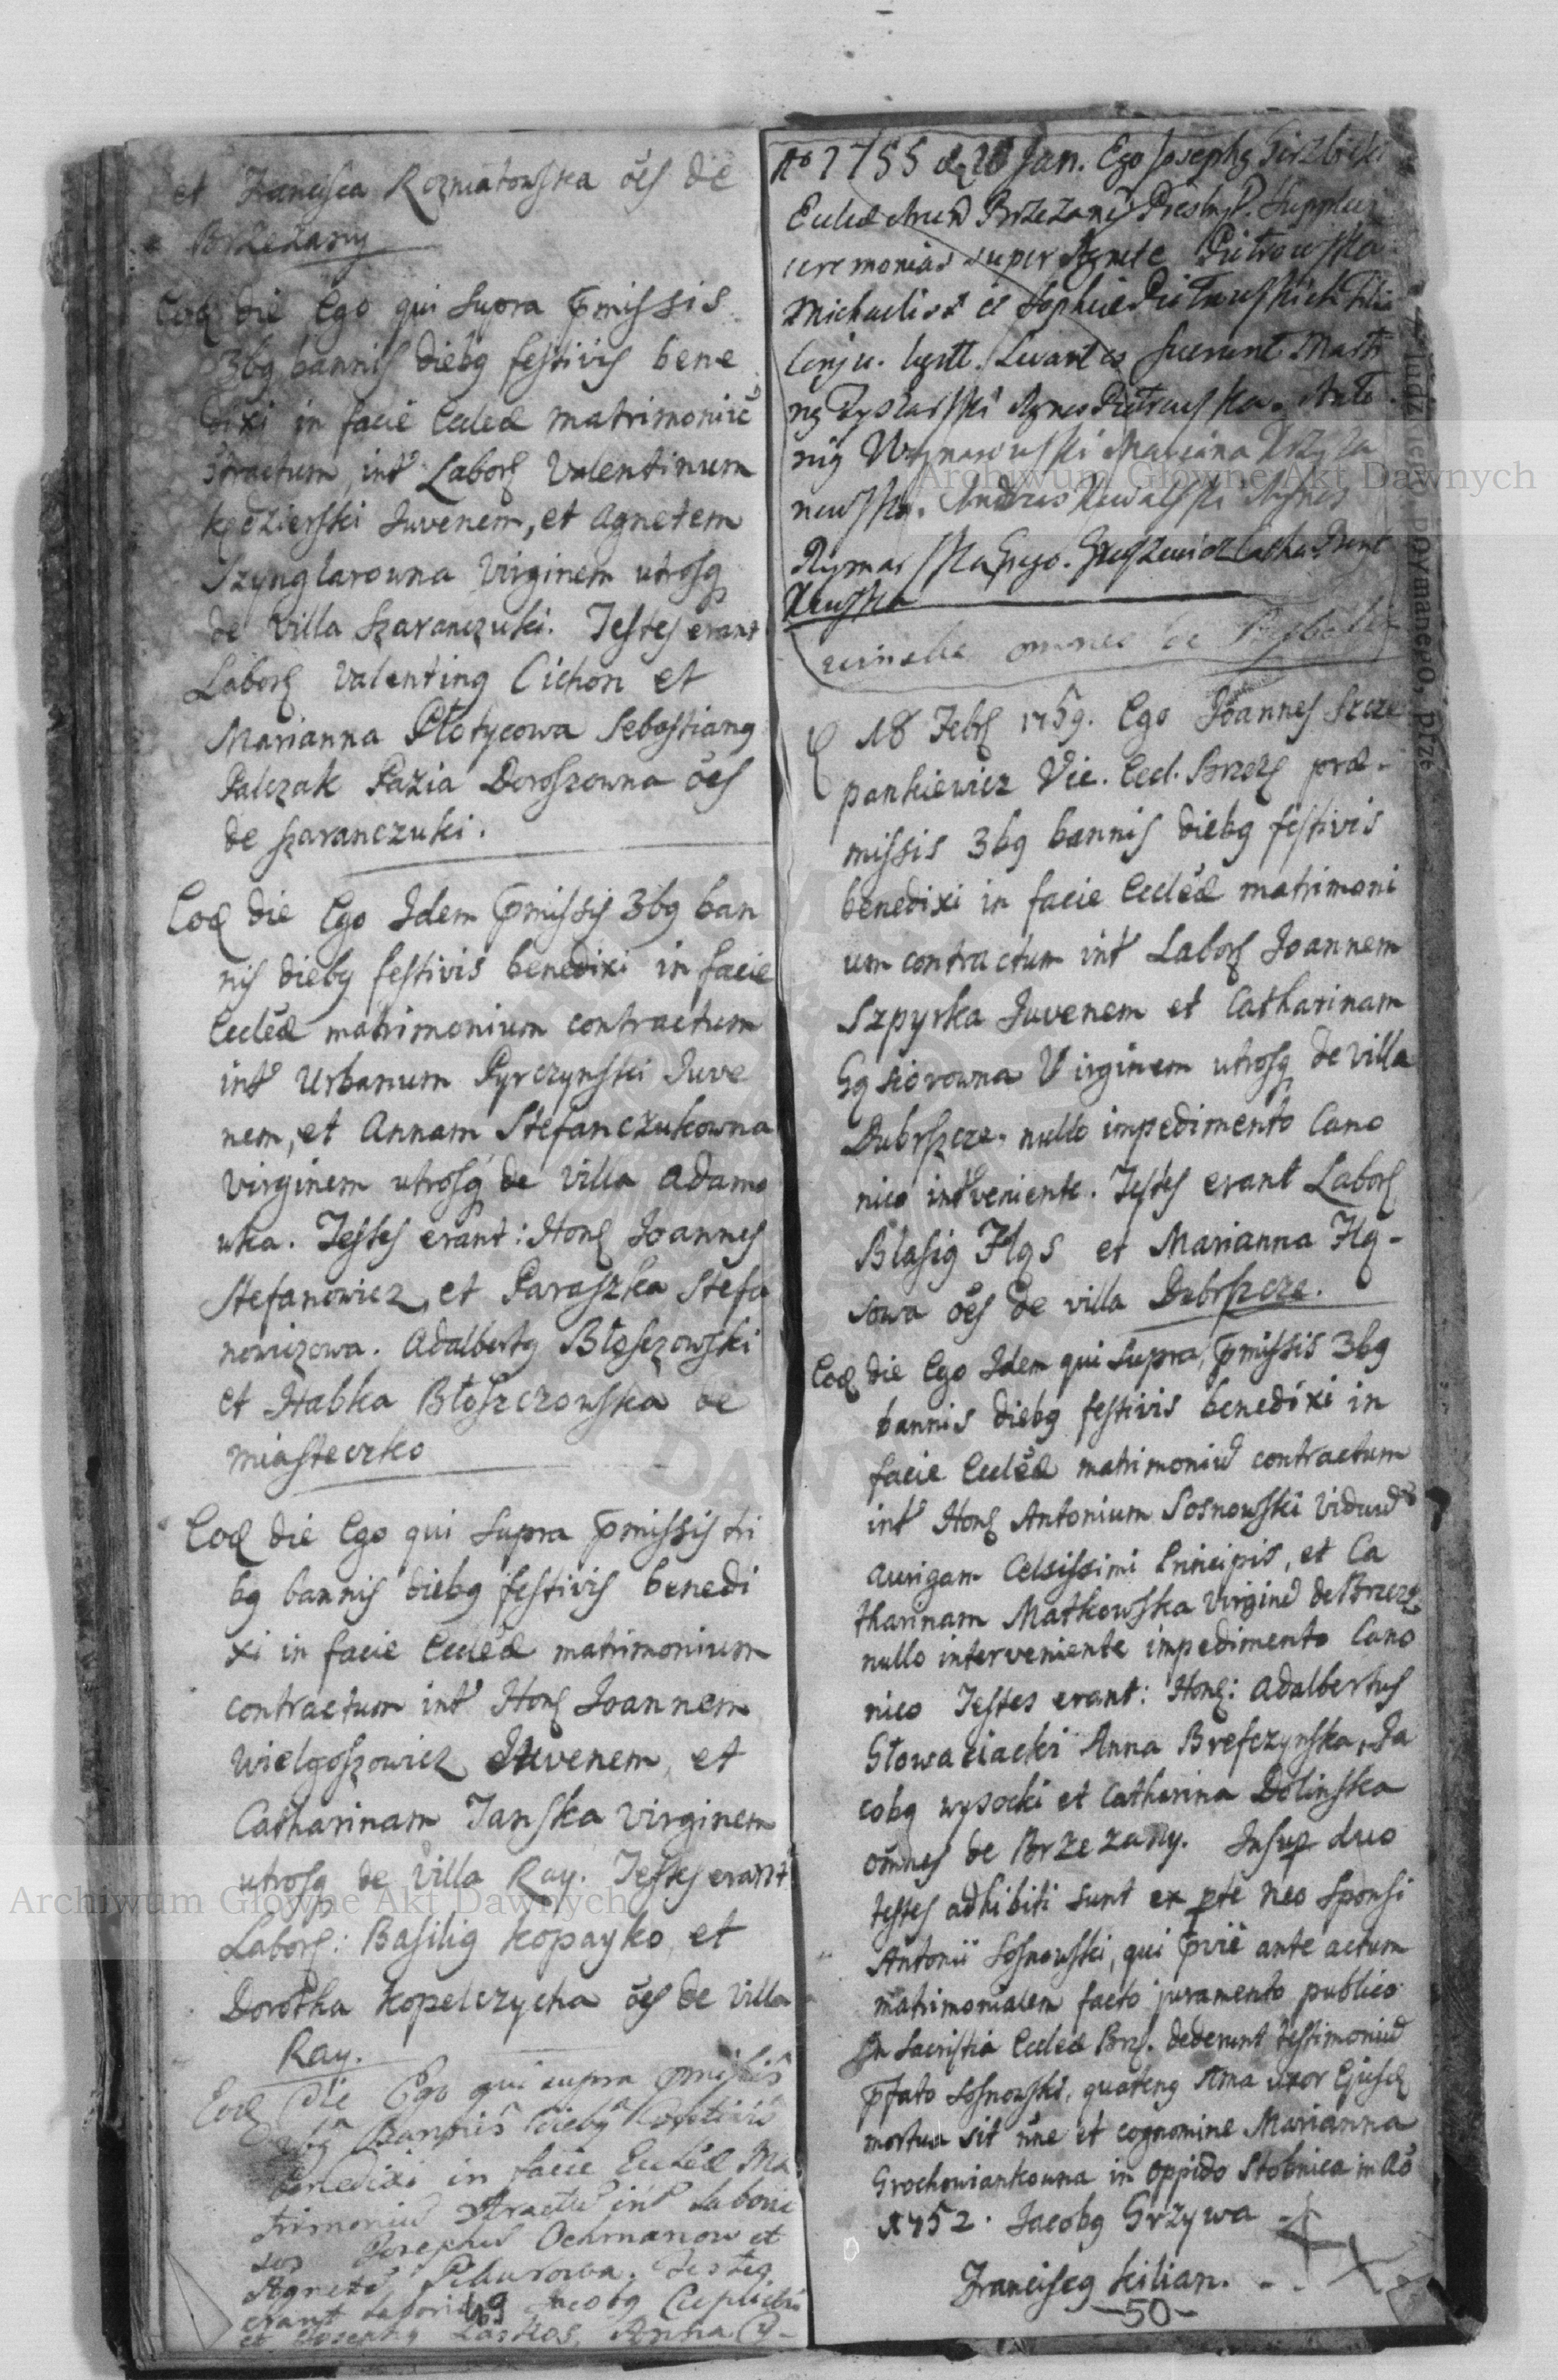 et Francisca Rozniatowska oēs de
Brzezany
Eođ die Ego qui supra p̄missis
3bꝯ bannis diebꝯ festivis bene
dixi in facie Eccl̄æ matrimoniū
9tractum, int̄ Labor̨ Valentinum
Kędzierski Juvenem, et Agnetem
Szynglarowna Virginem utrosq̨
de Villa Szaranczuki. Testes erant
Labor̨ Valentinꝯ Cichon et
Marianna Płotycowa Sebastianꝯ
Palczak Pazia Doroszowna oēs
de Szaranczuki.
Eođ die Ego Idem p̄missis 3bꝯ ban
nis diebꝯ festivis benedixi in facie
Eccl̄æ matrimonium contractum
int̄ Urbanum Pyrczynski Juve
nem, et Annam Stefanczukowna
virginem utrosq̨ de villa Adamo
wka. Testes erant: Hon̨ Joannes
Stefanowicz, et Paraszka Stefa
nowiczowa. Adalbertꝯ Błoszczowski
et Habka Błoszczowska de
miasteczko
Eođ die Ego qui supra p̄missis tri
bꝯ bannis diebꝯ festivis benedi
xi in facie Eccl̄æ matrimonium
contractum int̄ Hon̨ Joannem
Wielgoszowicz Juvenem, et
Catharinam Janska virginem
utrosq̨ de villa Ray. Testes erant
Labor̨: Basiliꝯ Kopayko et
Dorotha Kopelczycha oēs de villa
Ray.
Eođ die Ego qui supra p̄missis
3bꝯ Bannis diebꝯ festivis
benedixi in facie Eccl̄æ Ma
trimoniū 9tractū int̄ Labori
sos Josephū Ochmanow et
Agnetē. Testes
erant Jacobꝯ
et Josephꝯ Anna
49
Aō 1755 Jan. Ego Josephꝯ
Presbyt. supplevi
ceremonias super Agnete Piotrowska
Michaelis et Sophiæ Piotrowskich
Conju. legitt. Levantes fuerunt Marti
nꝯ Agnes Piotrowska. Anto
niꝯ Marianna Krzyza
nowska. Andreas Kowalski Agnes
Rymarska
omnes de
18 Febr̨ 1759. Ego Joannes Szcze
pankiewicz Vic. Eccl. Brzez̨ præ-
missis 3bꝯ bannis diebꝯ festivis
benedixi in facie Eccl̄æ matrimoni
um contractum int̄ Labor̨ Joannem
Szpyrka Juvenem et Catharinam
Gąsiorowna Virginem utrosq̨ de villa
Dubrszcze, nullo impedimento Cano
nico int̄veniente. Testes erant Labor̨
Blasiꝯ Hąs et Marianna Hą-
sowa oēs de villa Dubrszcze.
Eođ die Ego Idem qui supra, p̄missis 3bꝯ
bannis diebꝯ festivis benedixi in
facie Eccl̄æ matrimoniū contractum
int̄ Hon̨ Antonium Sosnowski viduū
aurigam Celsissimi Principis, et Ca
tharinam Matkowska virginē de Brzez̨
nullo interveniente impedimento Cano
nico Testes erant: Hon̨: Adalbertus
Słowaciacki Anna Brefczynska, Ja
cobꝯ wysocki et Catharina Dolinska
om̄nes de Brzezany. Insup̱ duo
testes adhibiti sunt ex p̱te neo Sponsi
Antonii Sosnowski, qui p̄viē ante actum
matrimonialem facto juramento publico
in Sacristia Eccl̄æ Brz̨. dederunt testimoniū
p̄fato Sosnowski, quatenꝯ Ima uxor Ejusđ
mortua sit nn̄e et cognomine Marianna
Grochowiankowna in oppido Stobnica in Aō
1752. Jacobꝯ Grzywa
Franciscꝯ Kilian.
-50-
Archiwum Główne Akt Dawnych
Archiwum Główne Akt Dawnych